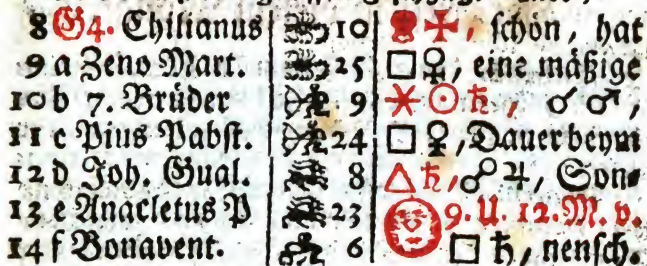 8 G4. Chilianus 10 schön, hat
9 a Zeno Mart. 25 □♀, eine mäßige
10 b 7. Brüder 9 ⚹☉♄, ☌♂,
11 c Pius Pabst. 24 □♀, Dauer beym
12 d Joh. Gual. 8 △♄, ☍♃, Son⸗
13 e Anacletus P 23 9. U. 12. M. v.
14 f Bonavent. 6 □♄, nensch.